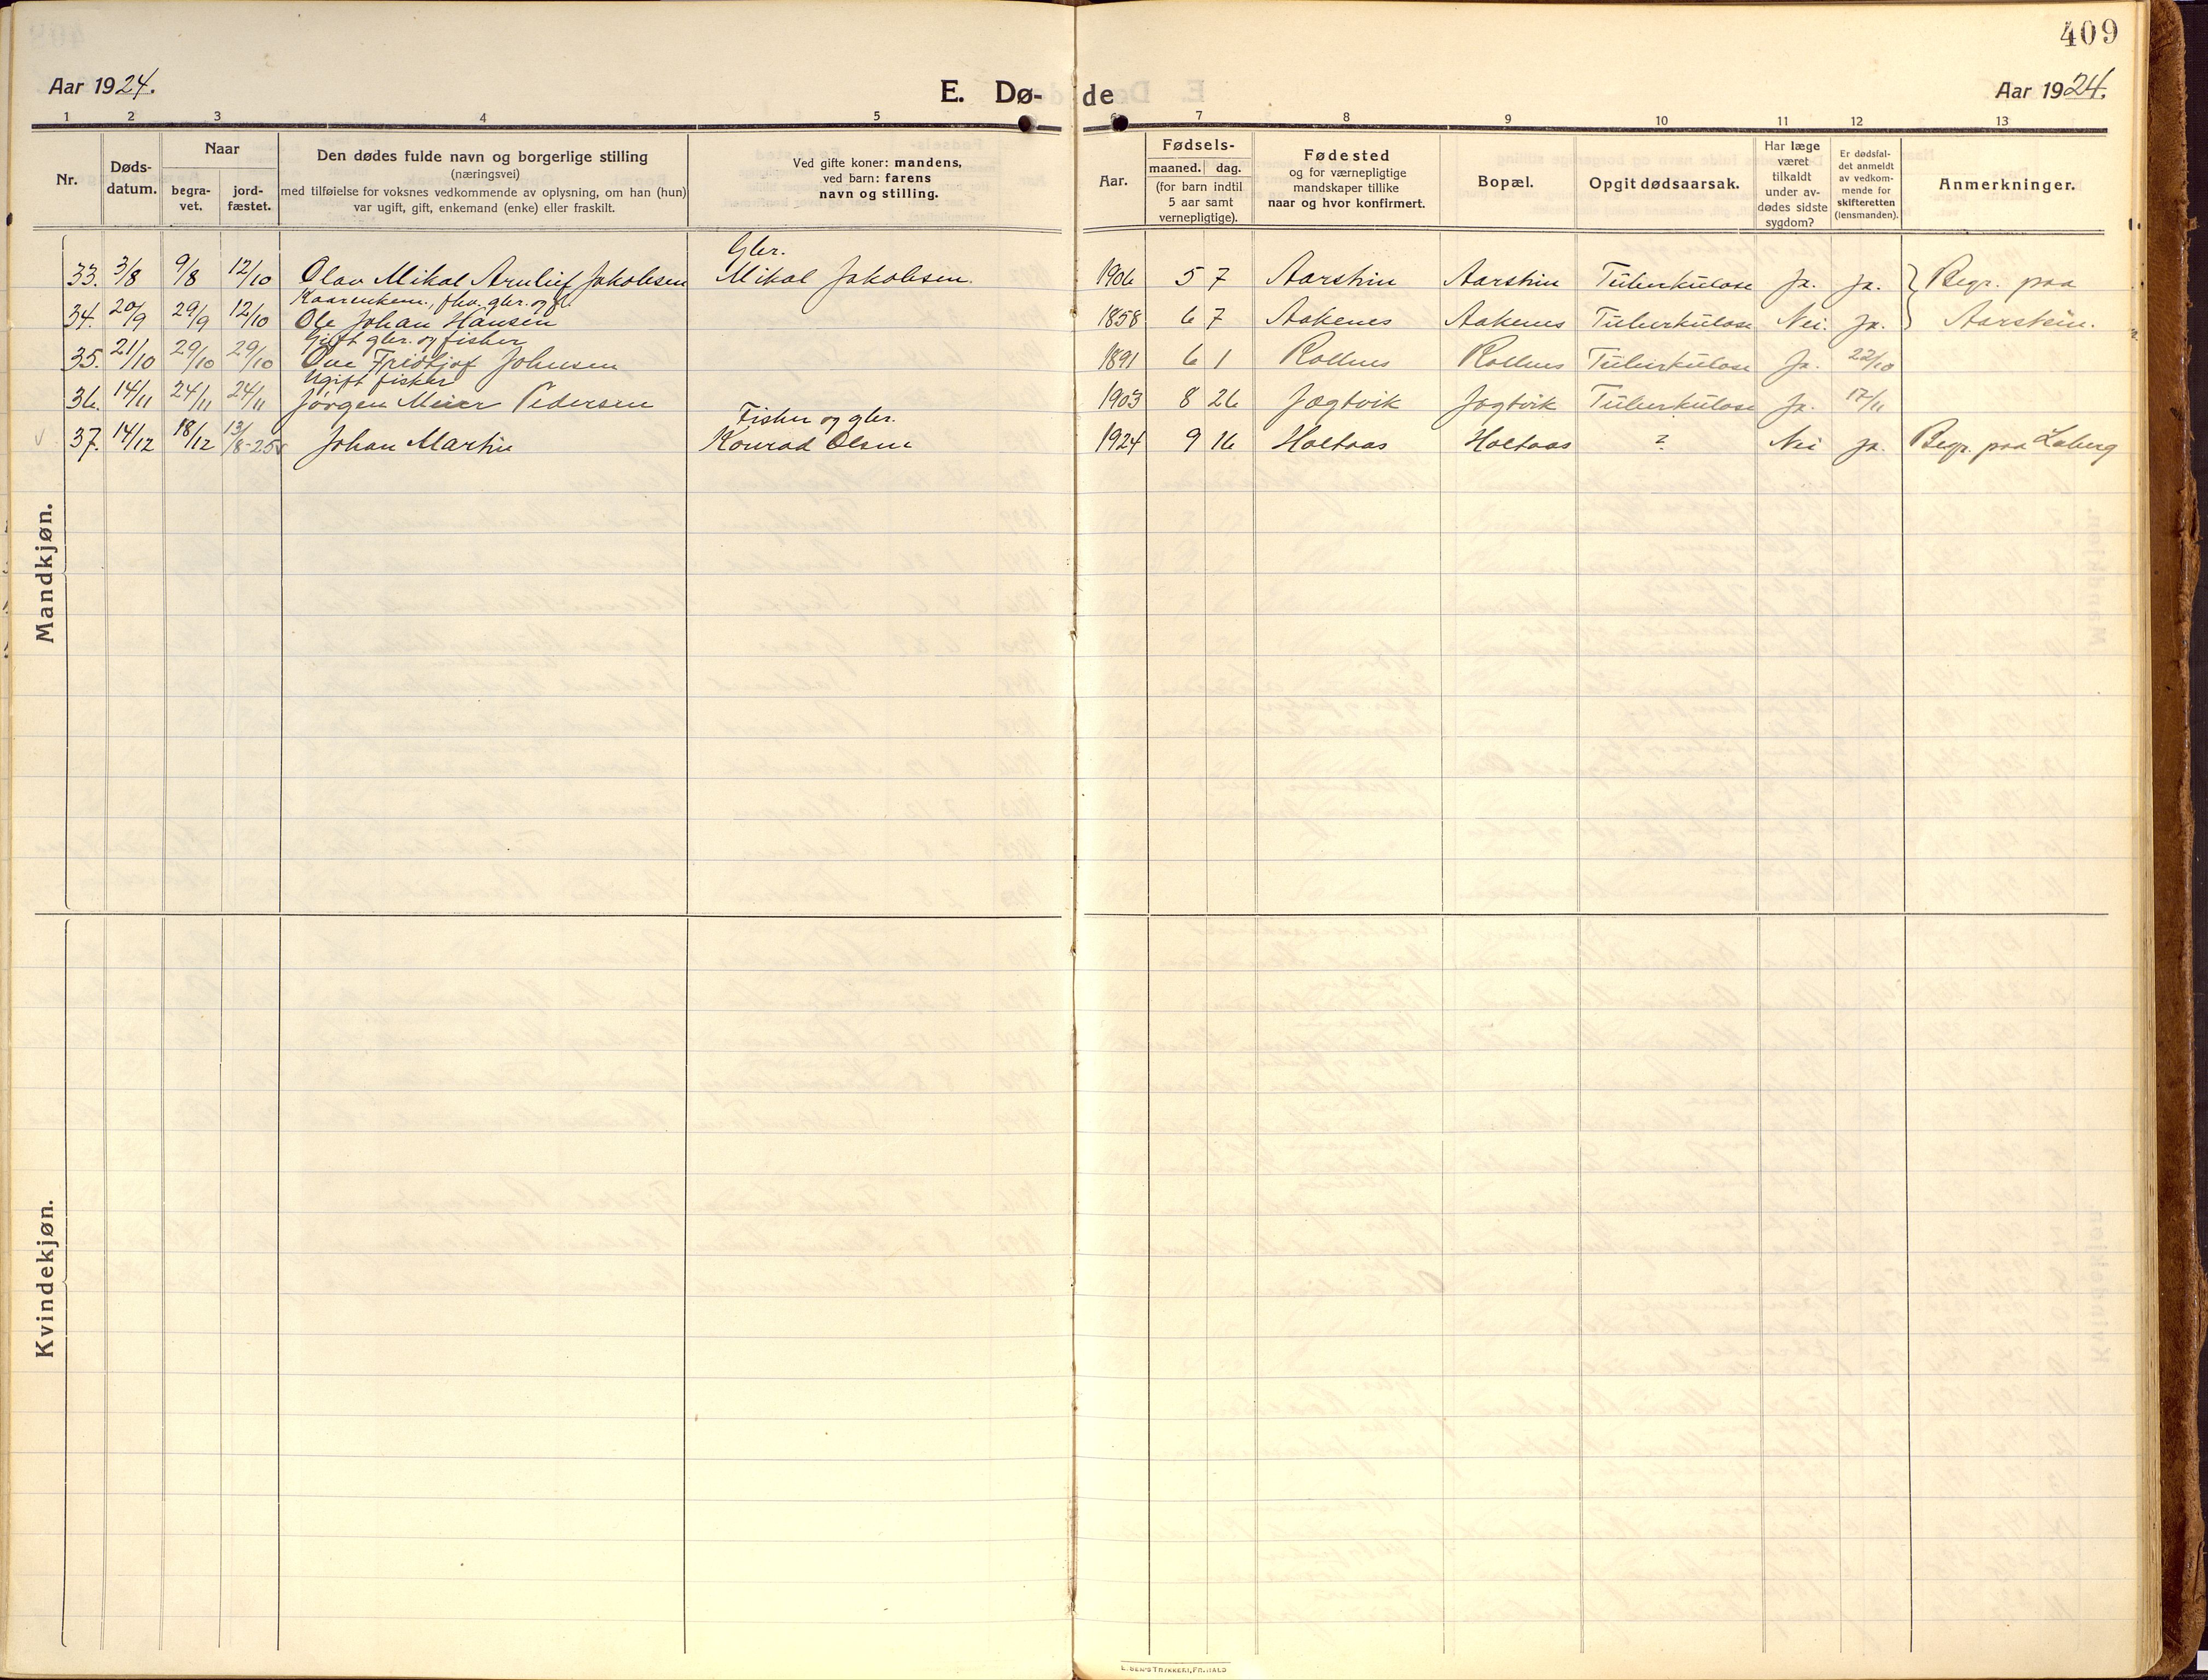 409
Aar 1924.
E. Dø-
de
Aar 1924.
1 2 3 4 5 6 7 8 9 10 11 12 13
Nr.
Døds-
datum.
Naar
begra-
vet.
jord-
fæstet.
Den dødes fulde navn og borgerlige stilling
(næringsvei)
med tilføielse for voksnes vedkommende av oplysning, om han (hun)
var ugift, gift, enkemand (enke) eller fraskilt.
Ved gifte koner: mandens,
ved barn: farens
navn og stilling.
Aar.
Fødsels-
maaned. dag.
(for barn indtil
5 aar samt
vernepligtige).
Fødested
og for værnepligtige
mandskaper tillike
naar og hvor konfirmert.
Bopæl.
Opgit dødsaarsak.
Har læge
været
tilkaldt
under av-
dødes sidste
sygdom?
Er dødsfal-
det anmeldt
av vedkom-
mende for
skifteretten
(lensmanden).
Anmerkninger.
Mandkjøn.
Gbr.
33. 3/8 9/8 12/10 Olav Mikal Arnleif Jakobsen Mikal Jakobsen. 1906 5 7 Aarstein Aarstein Tuberkulose Ja. Ja. Begr. paa
fhv. gbr. og
34. 20/9 29/9 12/10 Ole Johan Hansen 1858 6 7 Aakenes Aakenes Tuberkulose Nei. Ja. Aarstein.
Gift gbr. og fisker
35. 21/10 29/10 29/10 Ove Fridtjof Johnsen 1891 6 1 Rollnes Rollnes Tuberkulose Ja. 22/10
Ugift fisker
36. 14/11 24/11 24/11 Jørgen Meier Pedersen 1903 8 26 Jægtvik Jægtvik Tuberkulose Ja. 17/11
Fisker og gbr.
37. 14/12 18/12 13/8-25 Johan Martin Konrad Olsen 1924 9 16 Holtaas Holtaas ? Nei Ja. Begr. paa Laberg
Kvindekjøn.